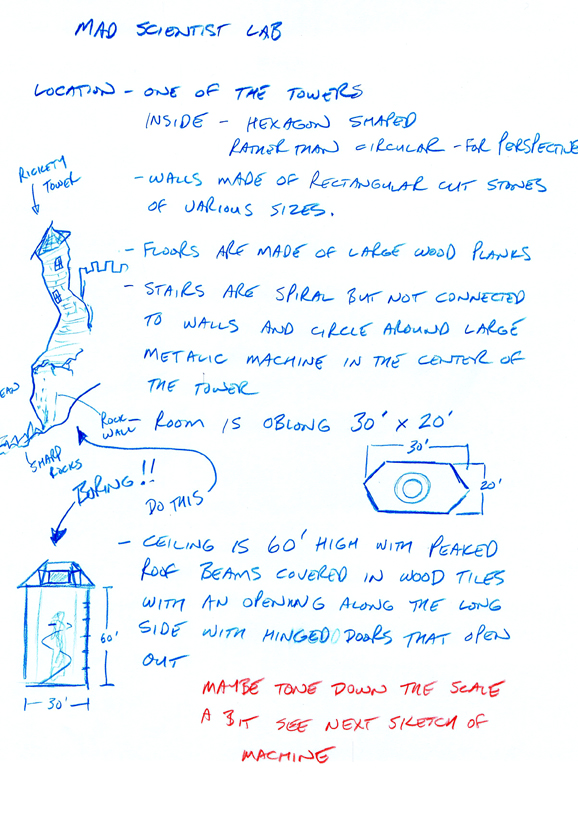 MAD SCIENTIST LAB
LOCATION - ONE OF THE TOWERS
INSIDE - HEXAGON SHAPED
RATHER THAN CIRCULAR - FOR PERSPECTIVE
RICKETY
TOWER
- WALLS MADE OF RECTANGULAR CUT STONES
OF VARIOUS SIZES.
- FLOORS ARE MADE OF LARGE WOOD PLANKS
- STAIRS ARE SPIRAL BUT NOT CONNECTED
TO WALLS AND CIRCLE AROUND LARGE
METALIC MACHINE IN THE CENTER OF
THE TOWER
EAN
ROCK
WALL
SHARP
ROCKS
- ROOM IS OBLONG 30' X 20'
30'
20'
BORING!!
DO THIS
- CEILING IS 60' HIGH WITH PEAKED
ROOF BEAMS COVERED IN WOOD TILES
WITH AN OPENING ALONG THE LONG
SIDE WITH HINGED DOORS THAT OPEN
OUT
60'
30'
MAYBE TONE DOWN THE SCALE
A BIT SEE NEXT SKETCH OF
MACHINE